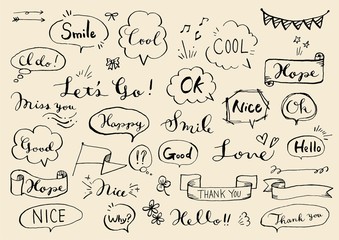 Smile
Cool
COOL
I do!
Hope
Let's Go!
OK
Miss you
Nice
Oh
Happy
Smile
Good
!?
Good
Love
Hello
Hope
Nice
THANK YOU
NICE
Why?
Hello!!
Thank you